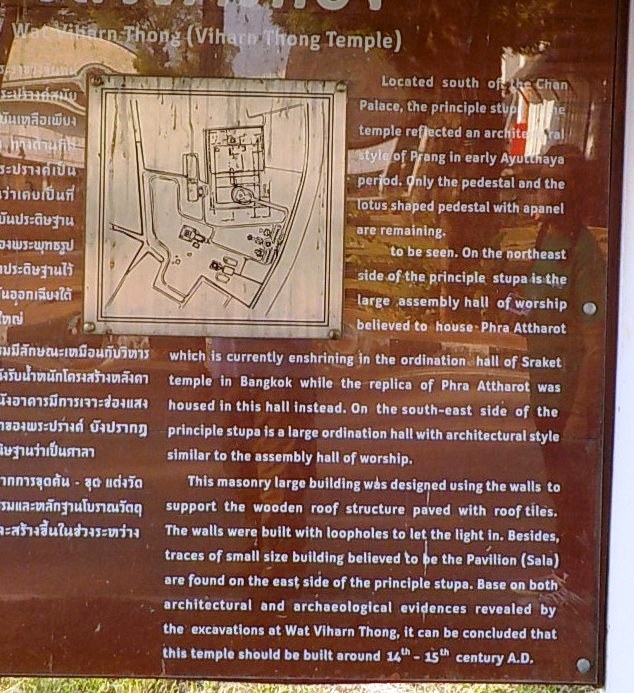 Wat Viharn Thong (Viharn Thong Temple)
Located south of the Chan
Palace, the principle stupa of the
temple reflected an architectural
style of Prang in early Ayutthaya
period. Only the pedestal and the
lotus shaped pedestal with apanel
are remaining.
to be seen. On the northeast
side of the principle stupa is the
large assembly hall of worship
believed to house Phra Attharot
which is currently enshrining in the ordination hall of Sraket
temple in Bangkok while the replica of Phra Attharot was
housed in this hall instead. On the south-east side of the
principle stupa is a large ordination hall with architectural style
similar to the assembly hall of worship.
This masonry large building was designed using the walls to
support the wooden roof structure paved with roof tiles.
The walls were built with loopholes to let the light in. Besides,
traces of small size building believed to be the Pavilion (Sala)
are found on the east side of the principle stupa. Base on both
architectural and archaeological evidences revealed by
the excavations at Wat Viharn Thong, it can be concluded that
this temple should be built around 14th - 15th century A.D.
ระปรางค์เป็น
ว่าเคยเป็นที่
บันประดิษฐาน
องพระพุทธรูป
าประดิษฐานไว้
ันออกเฉียงใต้
ใหญ่
รมมีลักษณะเหมือนกับวิหาร
ังรับน้ำหนักโครงสร้างหลังคา
นังอาคารมีการเจาะช่องแสง
าของพระปรางค์ ยังปรากฏ
นิษฐานว่าเป็นศาลา
ากการขุดค้น - ขุด แต่งวัด
รรมและหลักฐานโบราณวัตถุ
จะสร้างขึ้นในช่วงระหว่าง